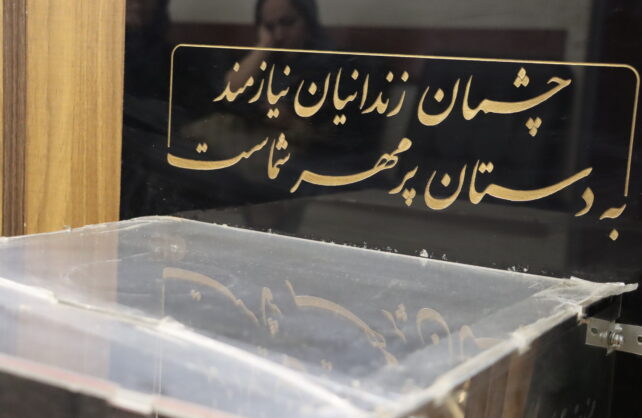 چشمان زندانیان نیازمند
به دستان پر مهر شماست